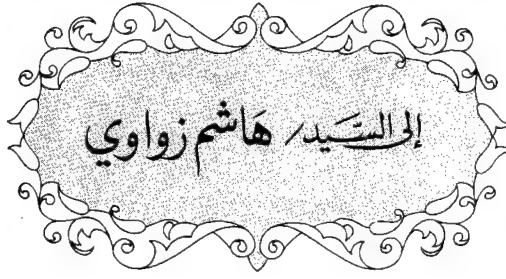 إلى السَّيد/ هَاشم زواوي